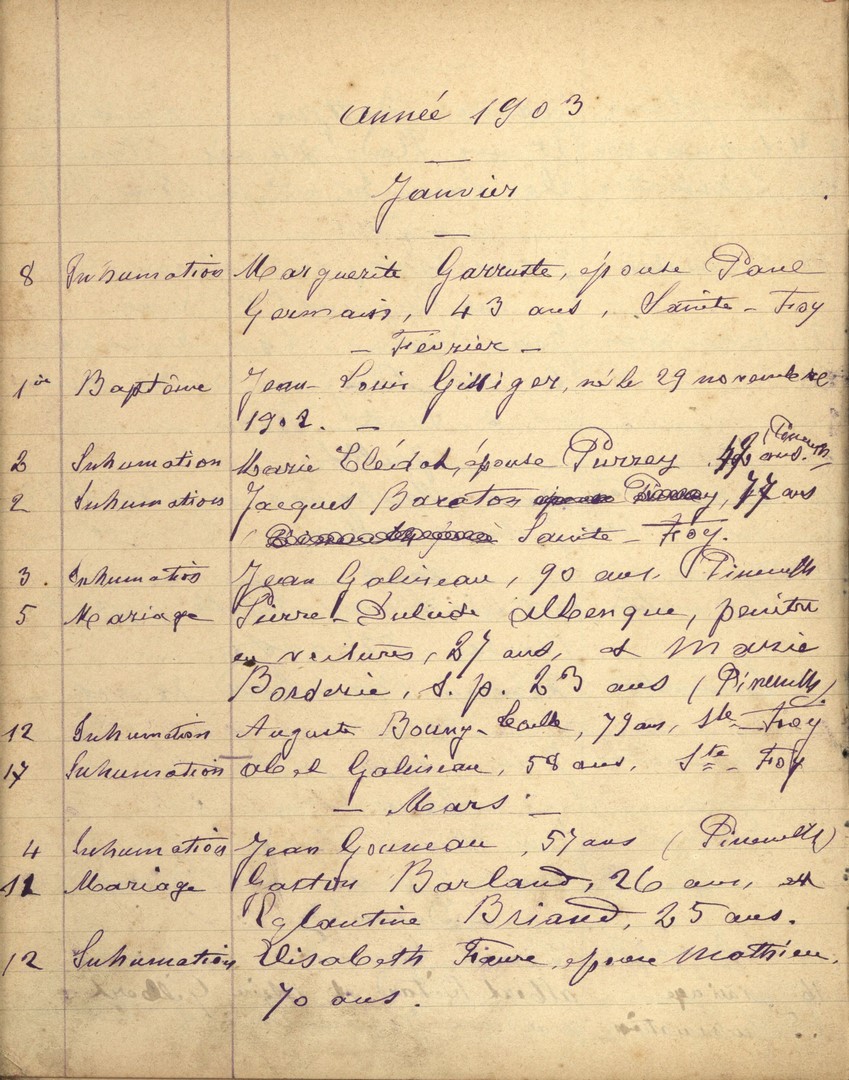 Année 1903
Janvier
8 Inhumation Marguerite Garruste, épouse Paul
Germain, 43 ans, Sainte-Foy
- Février -
1er Baptême Jean-Louis Gilliger, né le 29 novembre
1902. -
2 Inhumation Marie épouse Purrey 42 ans. (Pineuilh)
2 Inhumation Jacques Baraton 77 ans
Sainte-Foy.
3. Inhumation Jean Galineau, 90 ans, (Pineuilh
5 Mariage Pierre- Albenque, peintre
en voitures, 27 ans, et Marie
Borderie, s. p. 23 ans (Pineuilh)
12 Inhumation Auguste Bouny- 79 ans, Ste-Foy
17 Inhumation Abel Galineau, 58 ans, Ste-Foy
- Mars -
4 Inhumation Jean Gouneau, 57 ans (Pineuilh)
11 Mariage Gaston Barland, 26 ans, et
Eglantine Briand, 25 ans.
12 Inhumation Elisabeth Faure, épouse Mathieu,
70 ans.